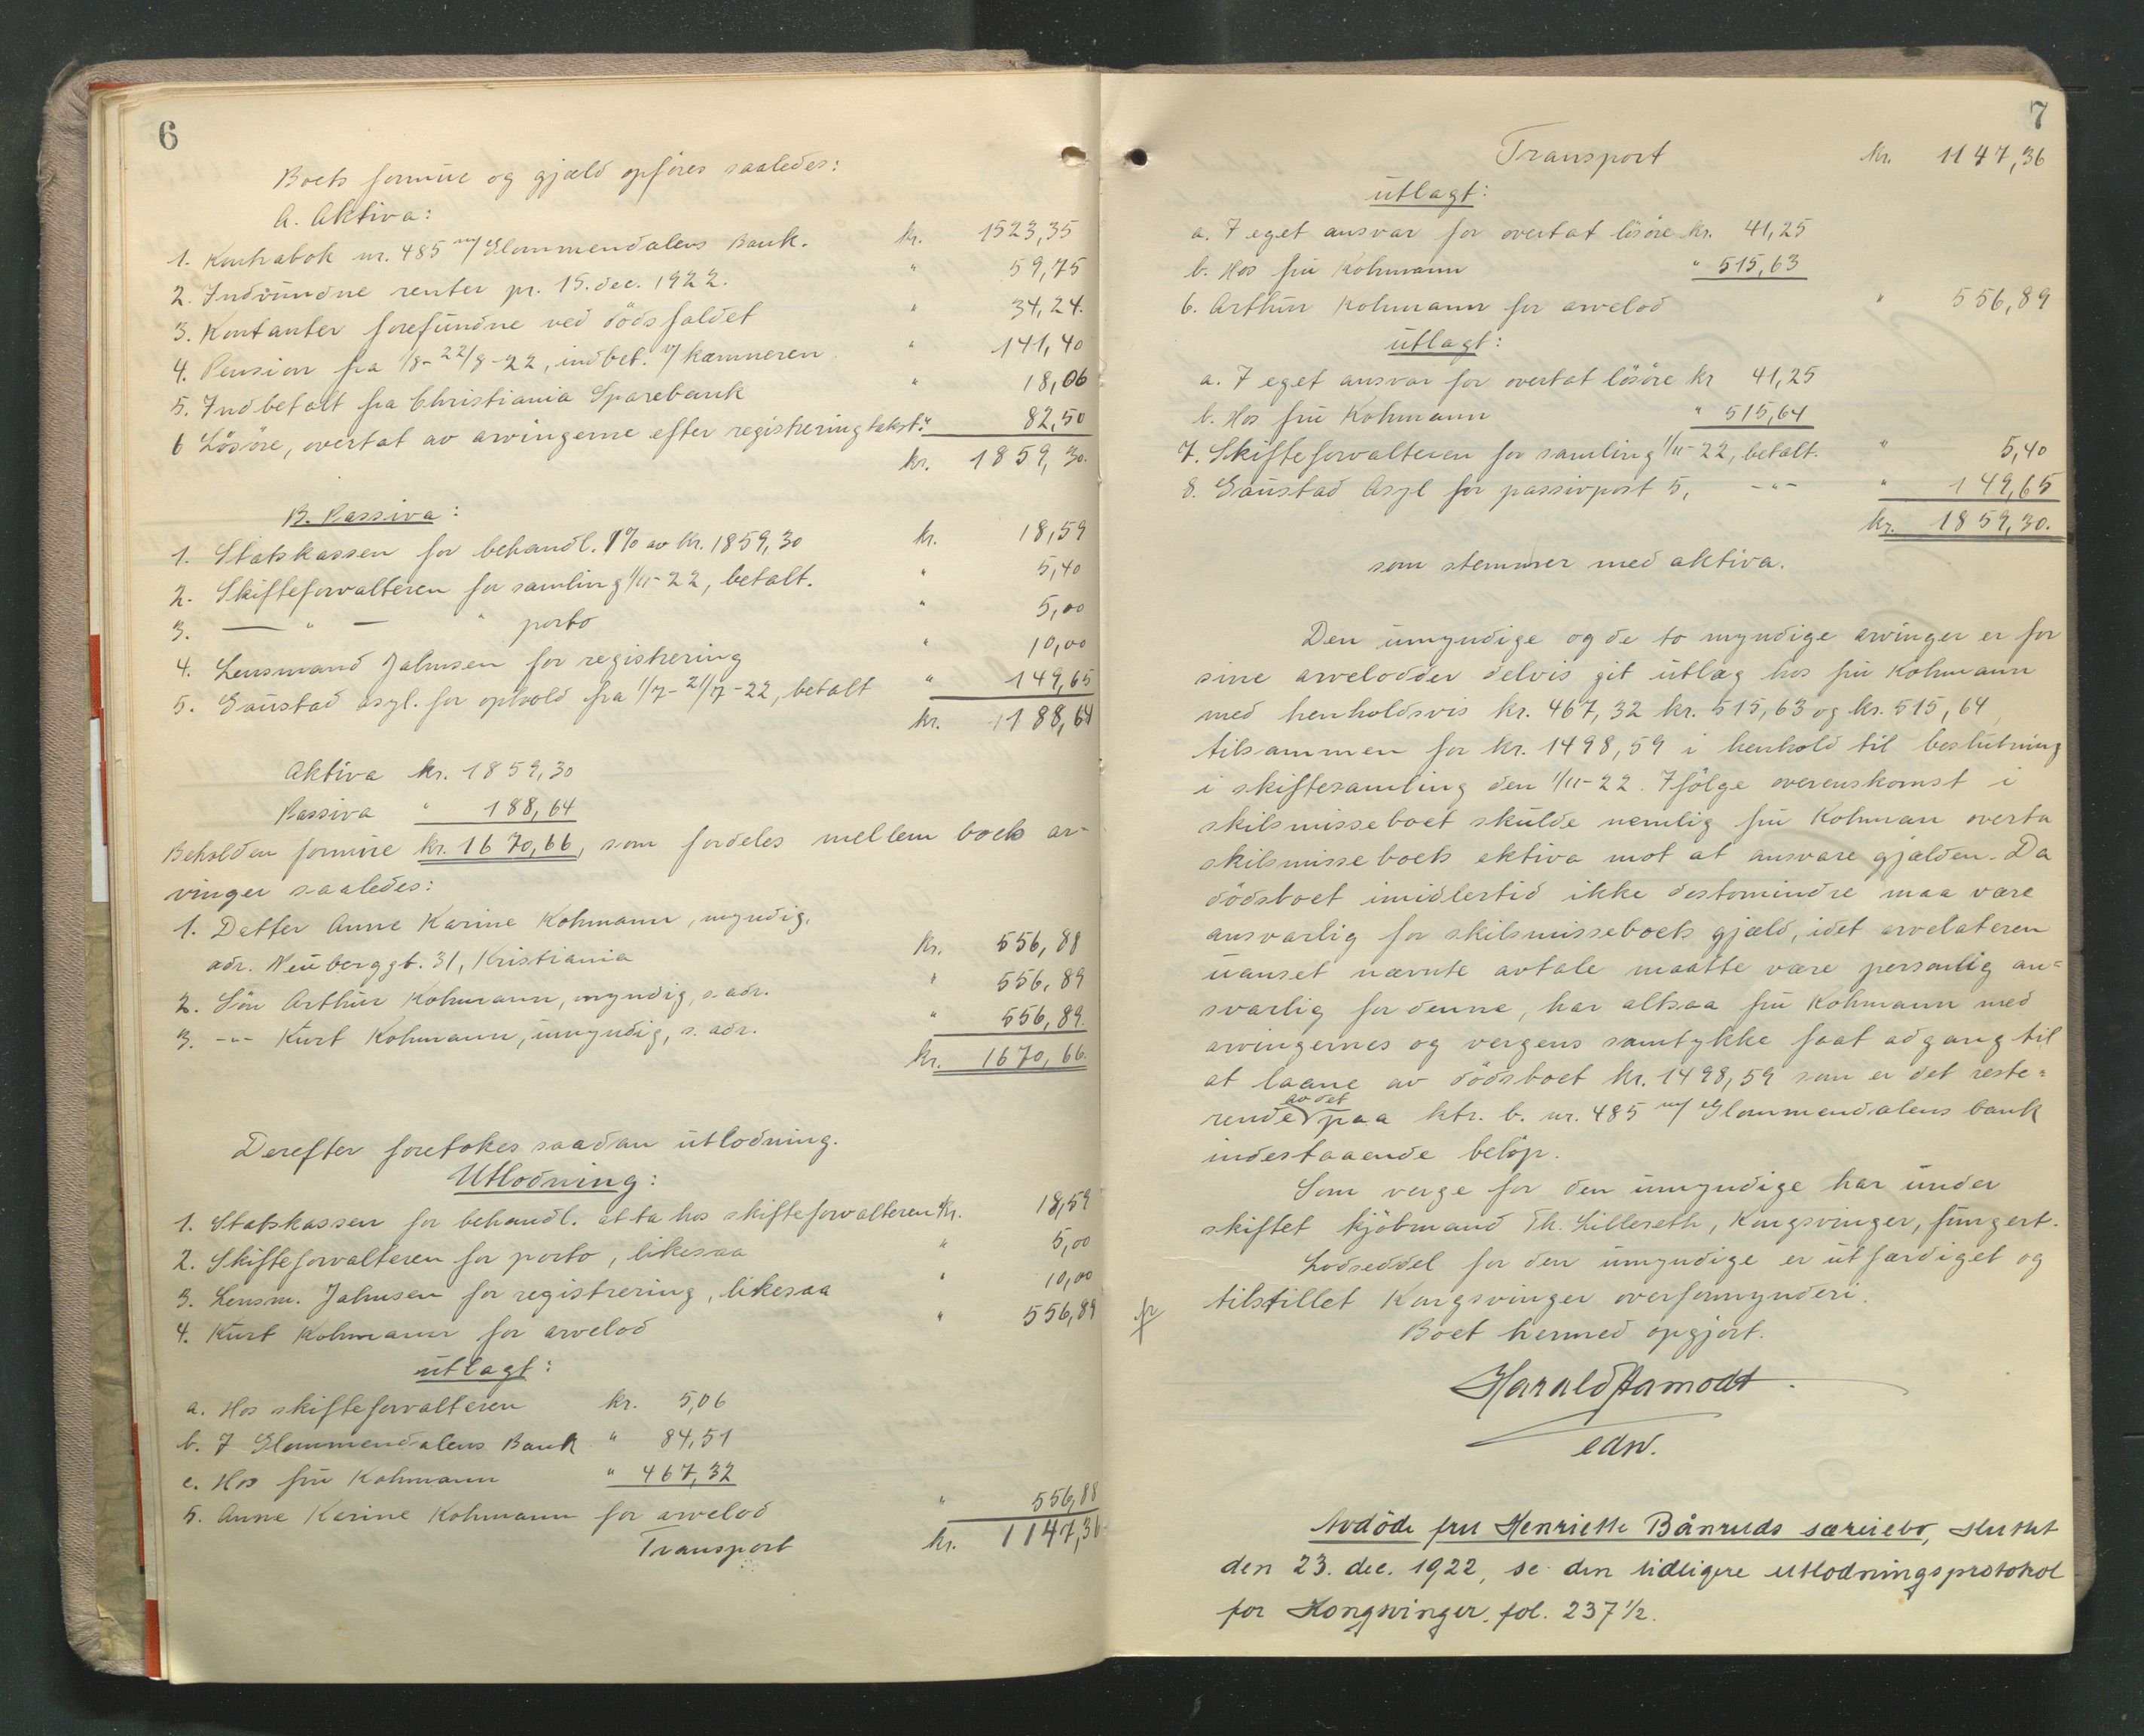 6
Boets formue og gjæld opföres saaledes:
A. Aktiva:
1. Kontrabok nr. 485 m/ Glommendalens Bank. kr. 1523,35
2. Indvundne renter pr. 15. dec. 1922. " 59,75
3. Kontanter forefundne ved dödsfaldet " 34,24.
4. Pension fra 1/8-22/8-22, indbet. v/ kæmneren " 141,40
5. Indbetalt fra Christiania Sparebank " 18,06
6 Lösöre, overtat av arvingerne efter registreringtakst. " 82,50
kr. 1859,30.
B. Passiva:
1. Statskassen for behandl. 1% av kr. 1859,30 kr. 18,59
2. Skifteforvalteren for samling 1/11-22, betalt. " 5,40
3. — " — " porto " 5,00
4. Lensmand Jahnsen for registrering " 10,00
5. Gaustad asyl. for ophold fra 1/7-21/7-22, betalt " 149,65
kr. 188,64
Aktiva kr. 1859,30
Passiva " 188,64
Beholden formue kr. 1670,66, som fordeles mellem boets ar-
vinger saaledes:
1. Datter Anne Karine Kohmann, myndig,
adr. Neuberggt. 31, Kristiania kr. 556,88
2. Sön Arthur Kohmann, myndig, s. adr. " 556,89
3. -"- Kurt Kohmann, umyndig, s. adr. " 556,89.
kr. 1670,66.
Derefter foretokes saadan utlodning.
Utlodning:
1. Statskassen for behandl. at ta hos skifteforvalteren kr. 18,59
2. Skifteforvalteren for porto, likesaa " 5,00
3. Lensm. Jahnsen for registrering, likesaa " 10,00
4. Kurt Kohmann for arvelod " 556,89
utlagt:
a. Hos skifteforvalteren kr. 5,06
b. I Glommendalens Bank " 84,51
c. Hos fru Kohmann " 467,32
5. Anne Karine Kohmann for arvelod " 556,88
Transport kr. 1147,36
7
Transport kr. 1147,36
utlagt:
a. I eget ansvar for overtat lösöre kr. 41,25
b. Hos fru Kohmann " 515,63
6. Arthur Kohmann for arvelod " 556,89
utlagt:
a. I eget ansvar for overtat lösöre kr 41,25
b. Hos fru Kohmann " 515,64
7. Skifteforvalteren for samling 1/11-22, betalt. " 5,40
8. Gaustad Asyl for passivpost 5, -"- " 149,65
kr. 1859,30.
som stemmer med aktiva.
Den umyndige og de to myndige arvinger er for
sine arvelodder delvis git utlæg hos fru Kohmann
med henholdsvis kr. 467,32 kr. 515,63 og kr. 515,64,
tilsammen for kr. 1498,59 i henhold til beslutning
i skiftesamling den 1/11-22. Ifölge overenskomst i
skilsmisseboet skulde nemlig fru Kohman overta
skilsmisseboets aktiva mot at ansvare gjælden. Da
dödsboet imidlertid ikke destomindre maa være
ansvarlig for skilsmisseboets gjæld, idet arvelateren
uanset nævnte avtale maatte være personlig an=
svarlig for denne, har altsaa fru Kohmann med
arvingernes og vergens samtykke faat adgang til
at laane av dödsboet kr. 1498,59 som er det reste=
rende av det paa ktr. b. nr. 485 m/ Glommendalens bank
indestaaende belöp.
Som verge for den umyndige har under
skiftet kjöbmand Th. Lillereth, Kongsvinger, fungert.
Lodseddel for den umyndige er utfærdiget og
tilstillet Kongsvinger overformynderi.
Boet hermed opgjort.
Harald Aamodt.
edw.
Avdöde fru Henriette Bånruds særeiebo, sluttet
den 23. dec. 1922, se den tidligere utlodningsprotokol
for Kongsvinger, fol. 237 1/2.